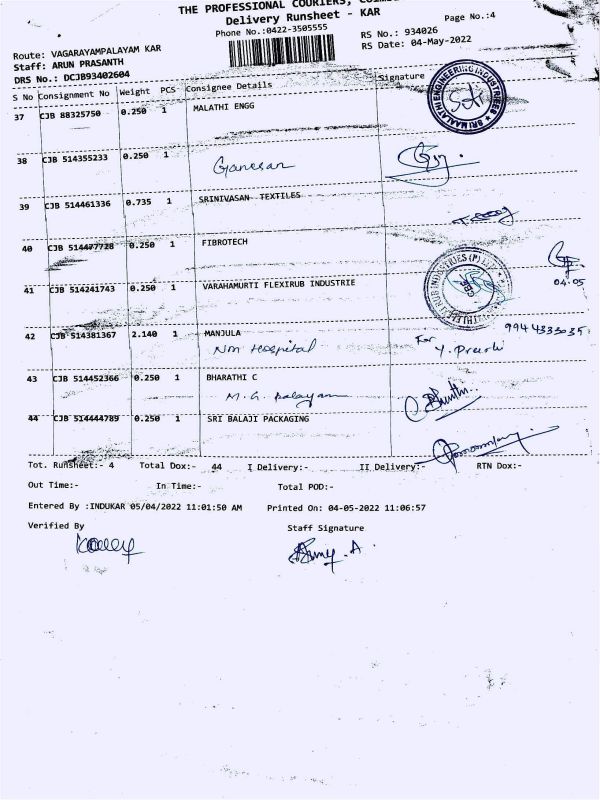 THE PROFESSIONAL COURIERS,
Delivery Runsheet - KAR
Phone No.:0422-3505555
Page No.:4
RS No.: 934026
RS Date: 04-May-2022
Route: VAGARAYAMPALAYAM KAR
Staff: ARUN PRASANTH
DRS No.: DCJB93402604
S No Consignment No Weight PCS Consignee Details Signature
37 CJB 88325750 0.250 1 MALATHI ENGG
38 CJB 514355233 0.250 1
Ganesan
39 CJB 514461336 0.735 1 SRINIVASAN TEXTILES
40 CJB 514477728 0.250 1 FIBROTECH
04.05
41 CJB 514241743 0.250 1 VARAHAMURTI FLEXIRUB INDUSTRIE
42 CJB 514381367 2.140 1 MANJULA
NM Hospital
For
9944333035
43 CJB 514452366 0.250 1 BHARATHI C
M.G. palayam
44 CJB 514444789 0.250 1 SRI BALAJI PACKAGING
Tot. Runsheet:- 4 Total Dox:- 44 I Delivery:- II Delivery:- RTN Dox:-
Out Time:- In Time:- Total POD:-
Entered By :INDUKAR 05/04/2022 11:01:50 AM Printed On: 04-05-2022 11:06:57
Verified By Staff Signature